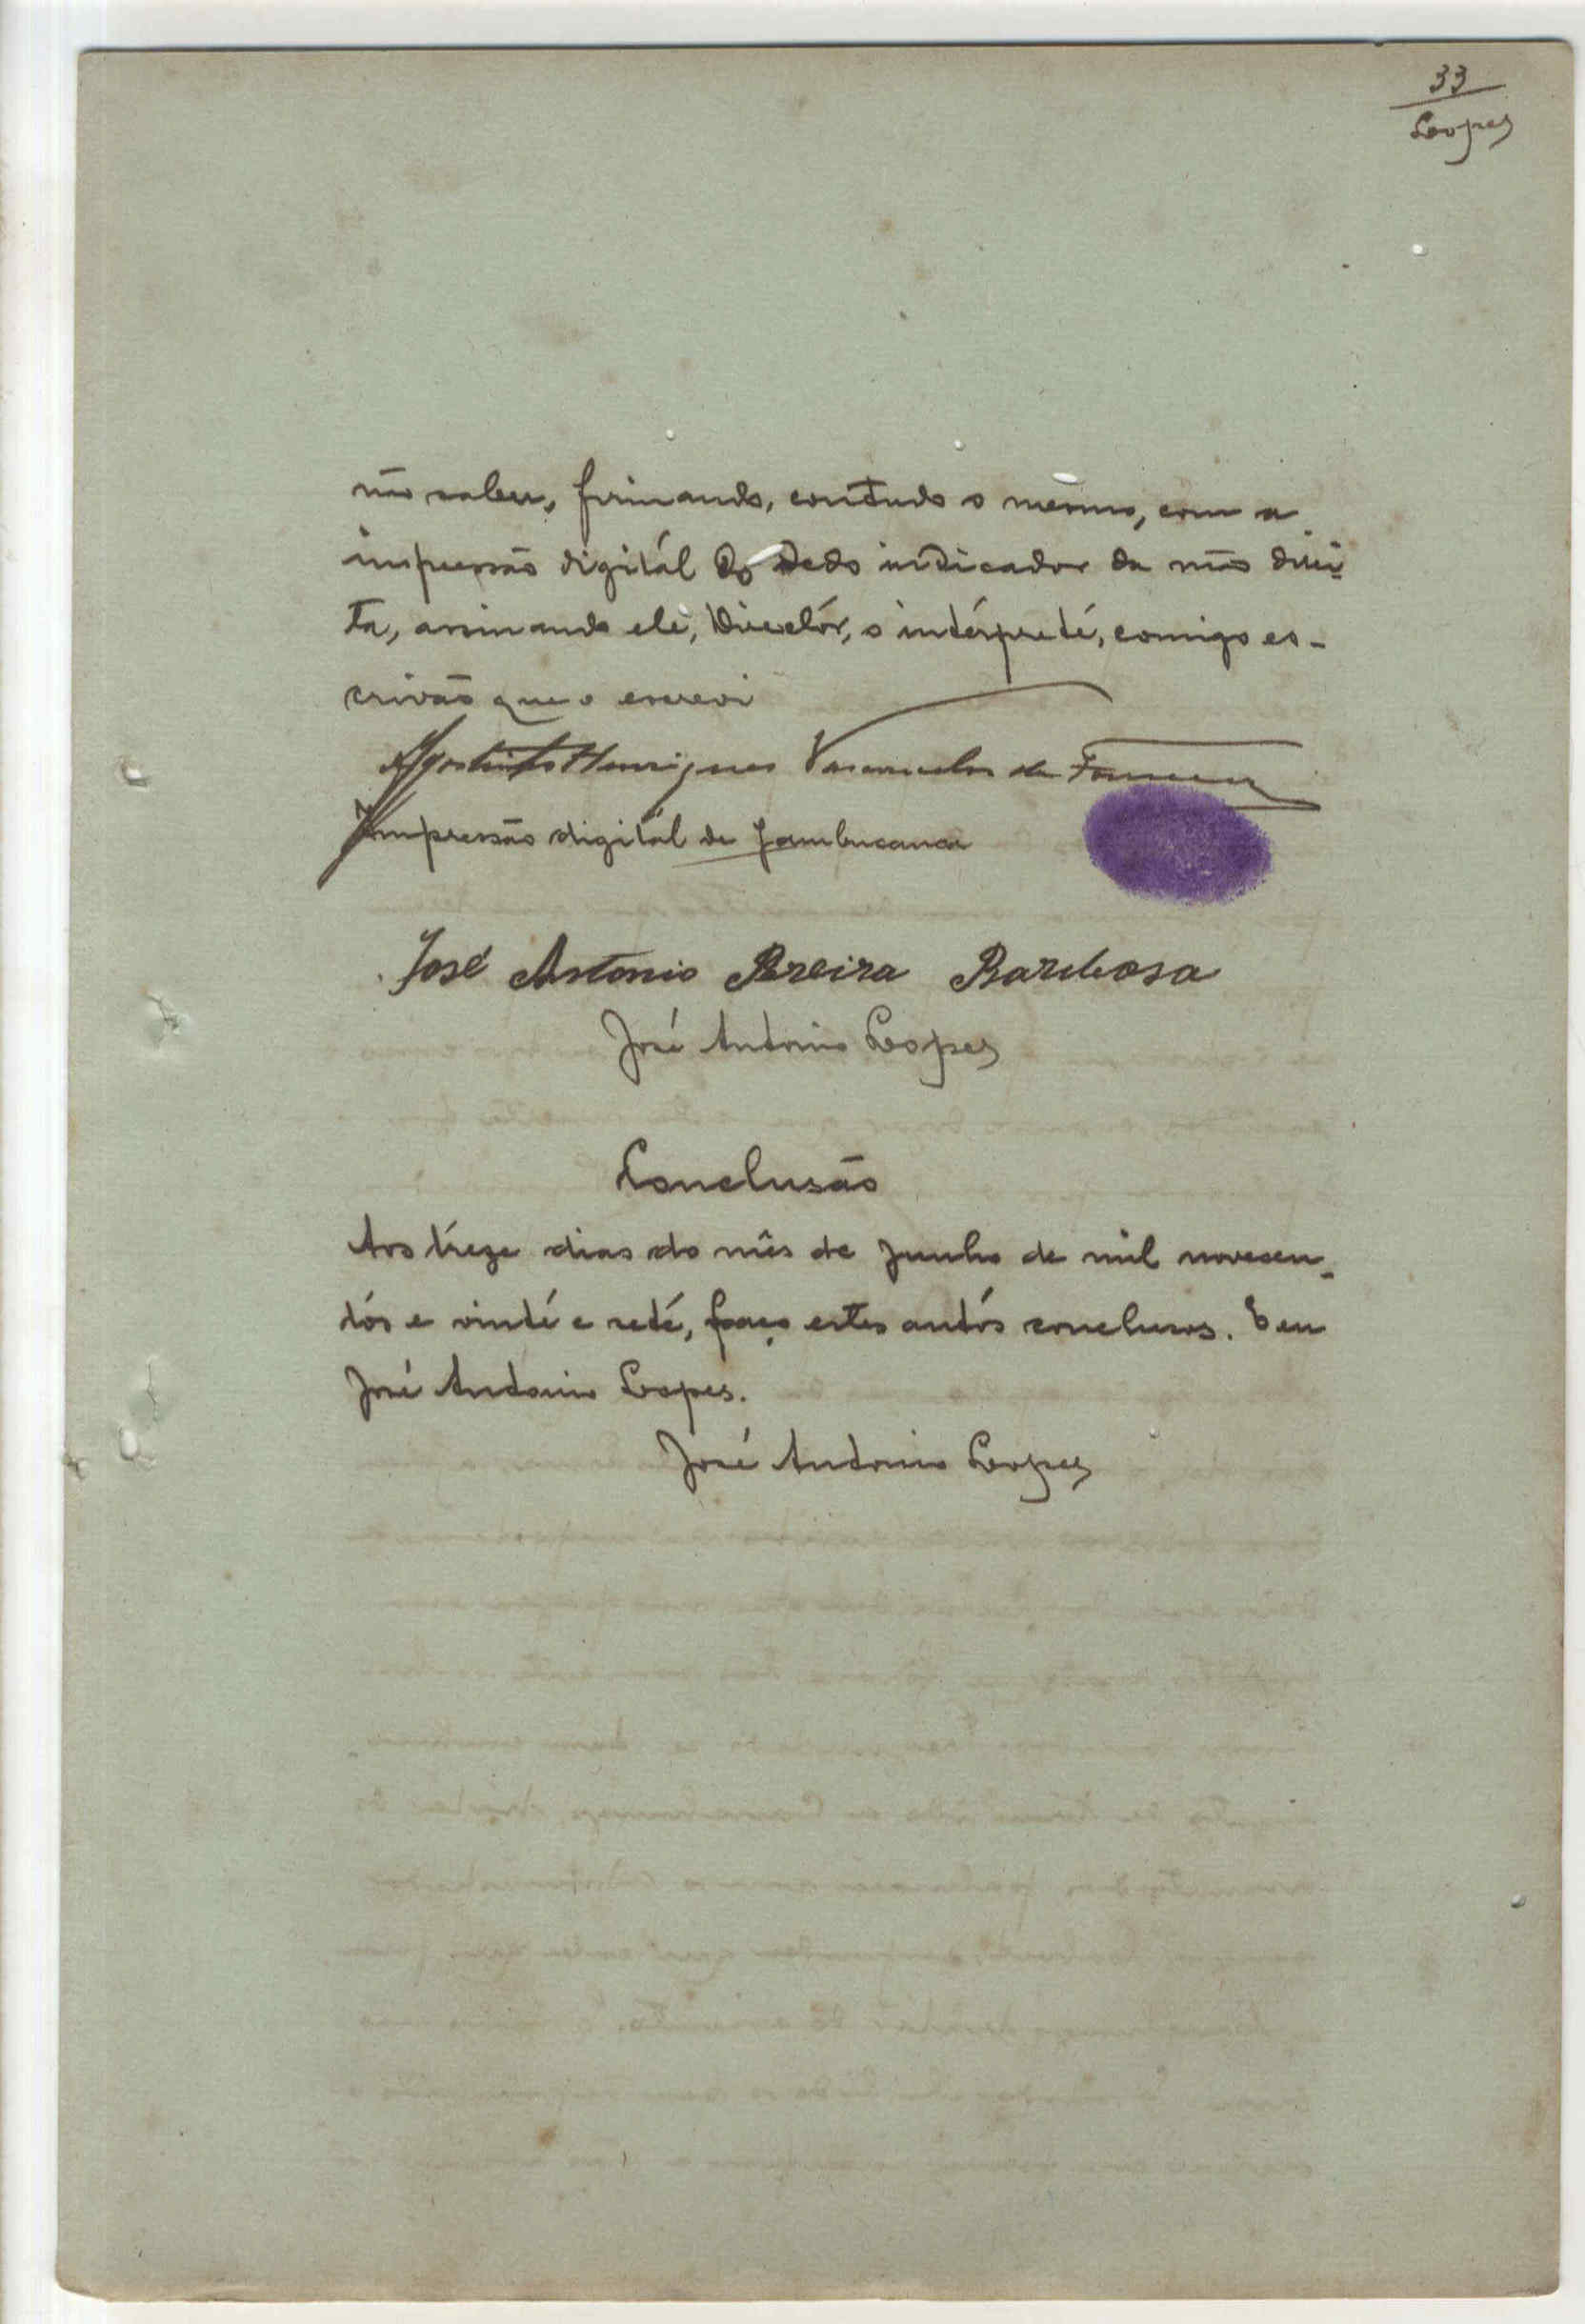 33
Lopes
não saber, firmando, contudo o mesmo, com a
impressão digitál do dedo indicador da mão direi-
ta, assinando ele, Directór, o intérpreté, comigo es-
crivão que o escrevi
Agostinho Henriques Vasconcelos da Fonseca
Impressão digitál de Jambucana
José Antonio Pereira Barbosa
José Antonio Lopes
Conclusão
Aos treze dias do mês de junho de mil novesen-
tós e vinté e seté, faço estes autós conclusos. E eu
José Antonio Lopes.
José Antonio Lopes